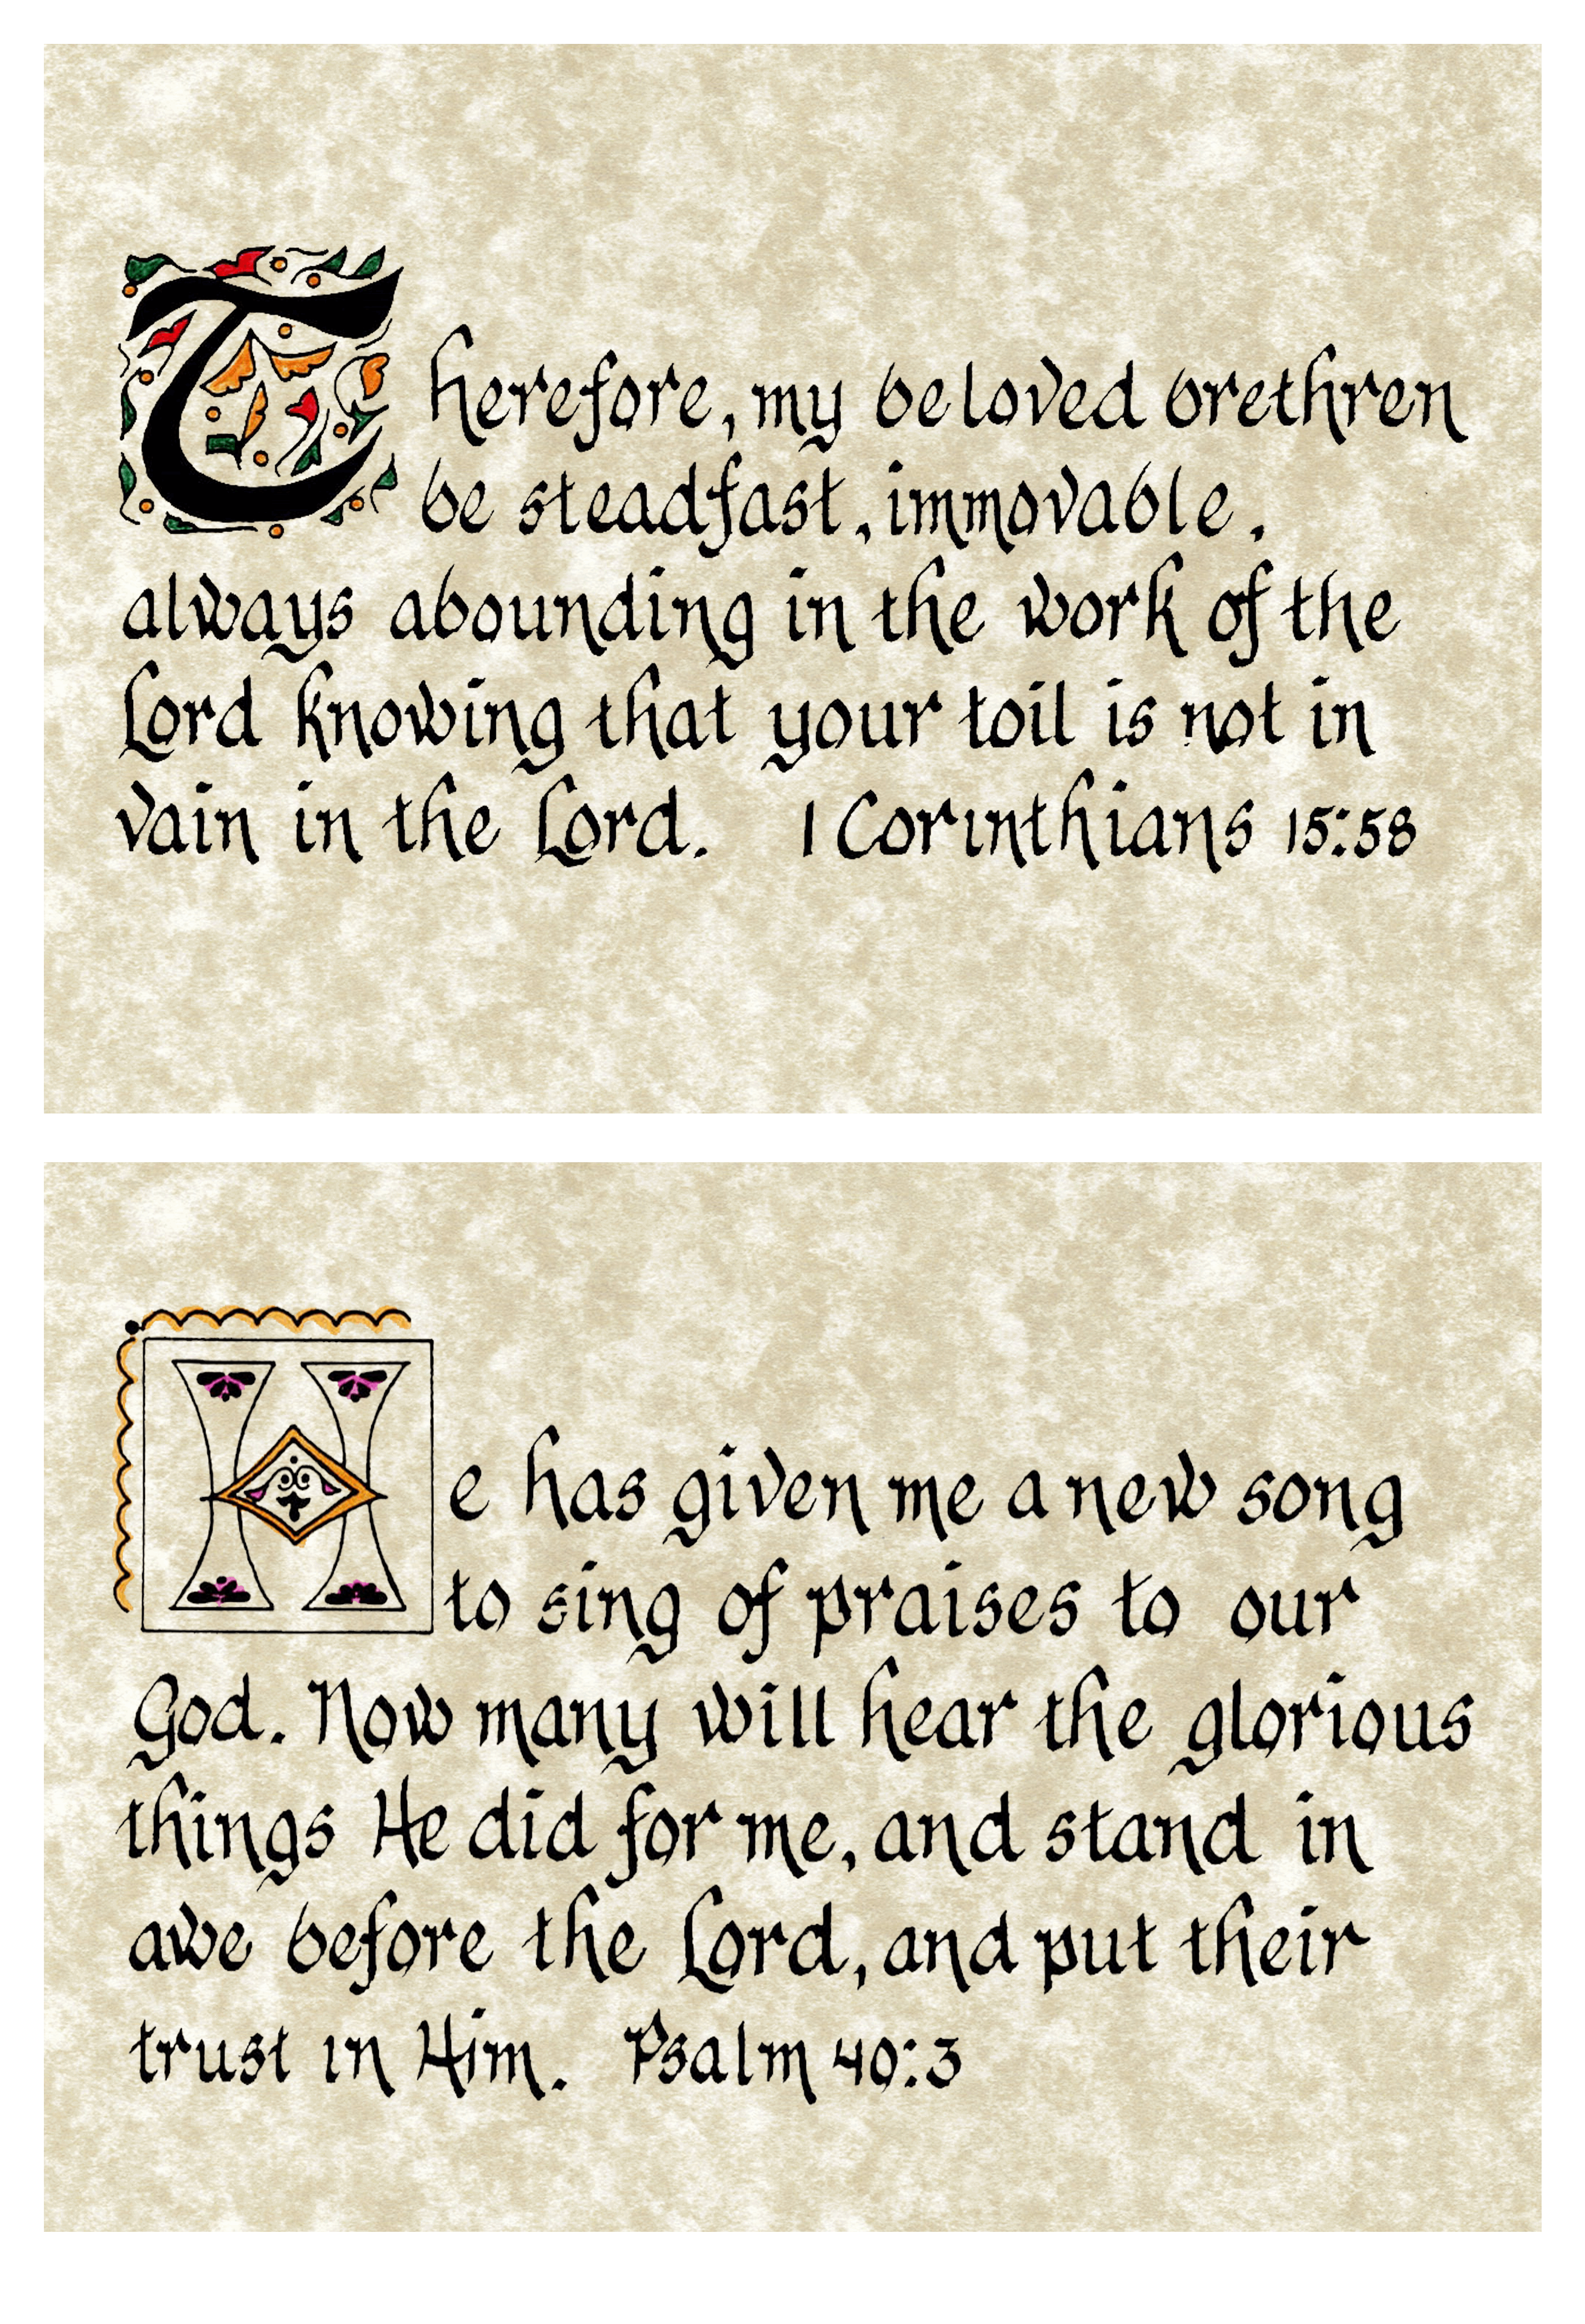 Therefore, my beloved brethren
be steadfast, immovable,
always abounding in the work of the
Lord knowing that your toil is not in
vain in the Lord. 1 Corinthians 15:58
He has given me a new song
to sing of praises to our
God. Now many will hear the glorious
things He did for me, and stand in
awe before the Lord, and put their
trust in Him. Psalm 40:3